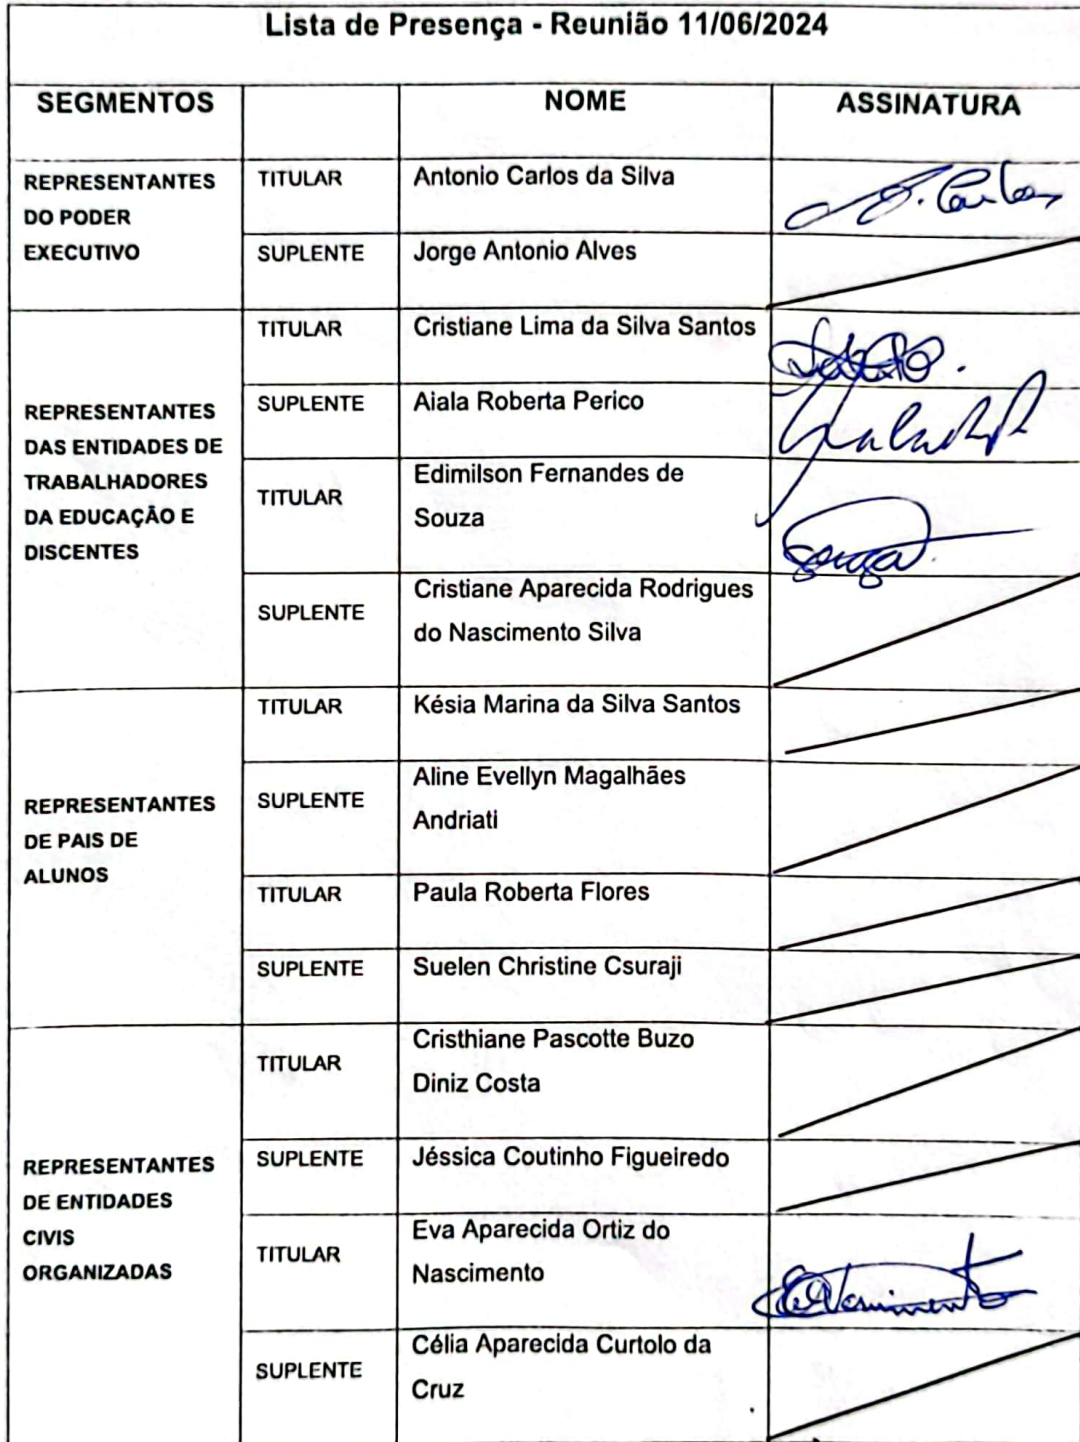 Lista de Presença - Reunião 11/06/2024
SEGMENTOS NOME ASSINATURA
REPRESENTANTES
DO PODER
EXECUTIVO
TITULAR Antonio Carlos da Silva
A. Carlos
SUPLENTE Jorge Antonio Alves
REPRESENTANTES
DAS ENTIDADES DE
TRABALHADORES
DA EDUCAÇÃO E
DISCENTES
TITULAR Cristiane Lima da Silva Santos
SUPLENTE Aiala Roberta Perico
TITULAR Edimilson Fernandes de
Souza
Souza
SUPLENTE Cristiane Aparecida Rodrigues
do Nascimento Silva
REPRESENTANTES
DE PAIS DE
ALUNOS
TITULAR Késia Marina da Silva Santos
SUPLENTE Aline Evellyn Magalhães
Andriati
TITULAR Paula Roberta Flores
SUPLENTE Suelen Christine Csuraji
REPRESENTANTES
DE ENTIDADES
CIVIS
ORGANIZADAS
TITULAR Cristhiane Pascotte Buzo
Diniz Costa
SUPLENTE Jéssica Coutinho Figueiredo
TITULAR Eva Aparecida Ortiz do
Nascimento
SUPLENTE Célia Aparecida Curtolo da
Cruz